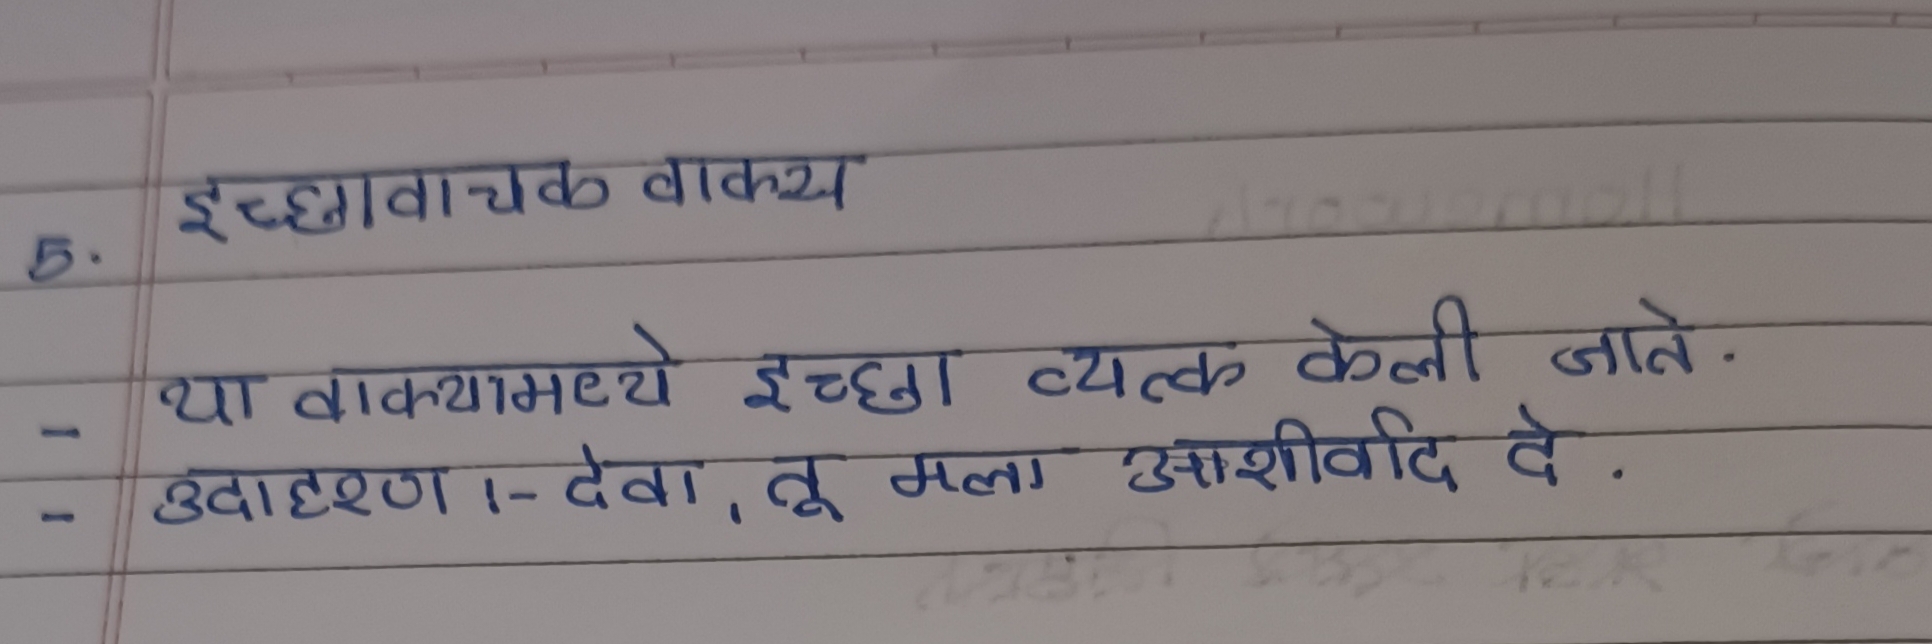 5. इच्छावाचक वाक्य
- या वाक्यामध्ये इच्छा व्यत्क केली जाते.
- उदाहरण :- देवा, तू मला आशीर्वाद दे.